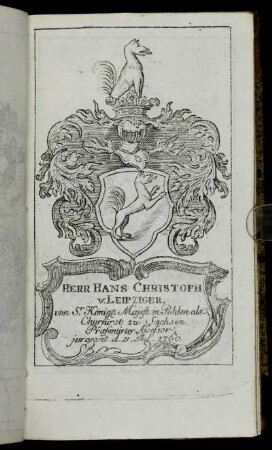 HERR HANS CHRISTOPH
v. LEIPZIGER,
von Sr. Königl. Majest. in Pohlen als
Churfürst zu Sachsen
Præsentirter Assessor
juravit d. 11. 1760.